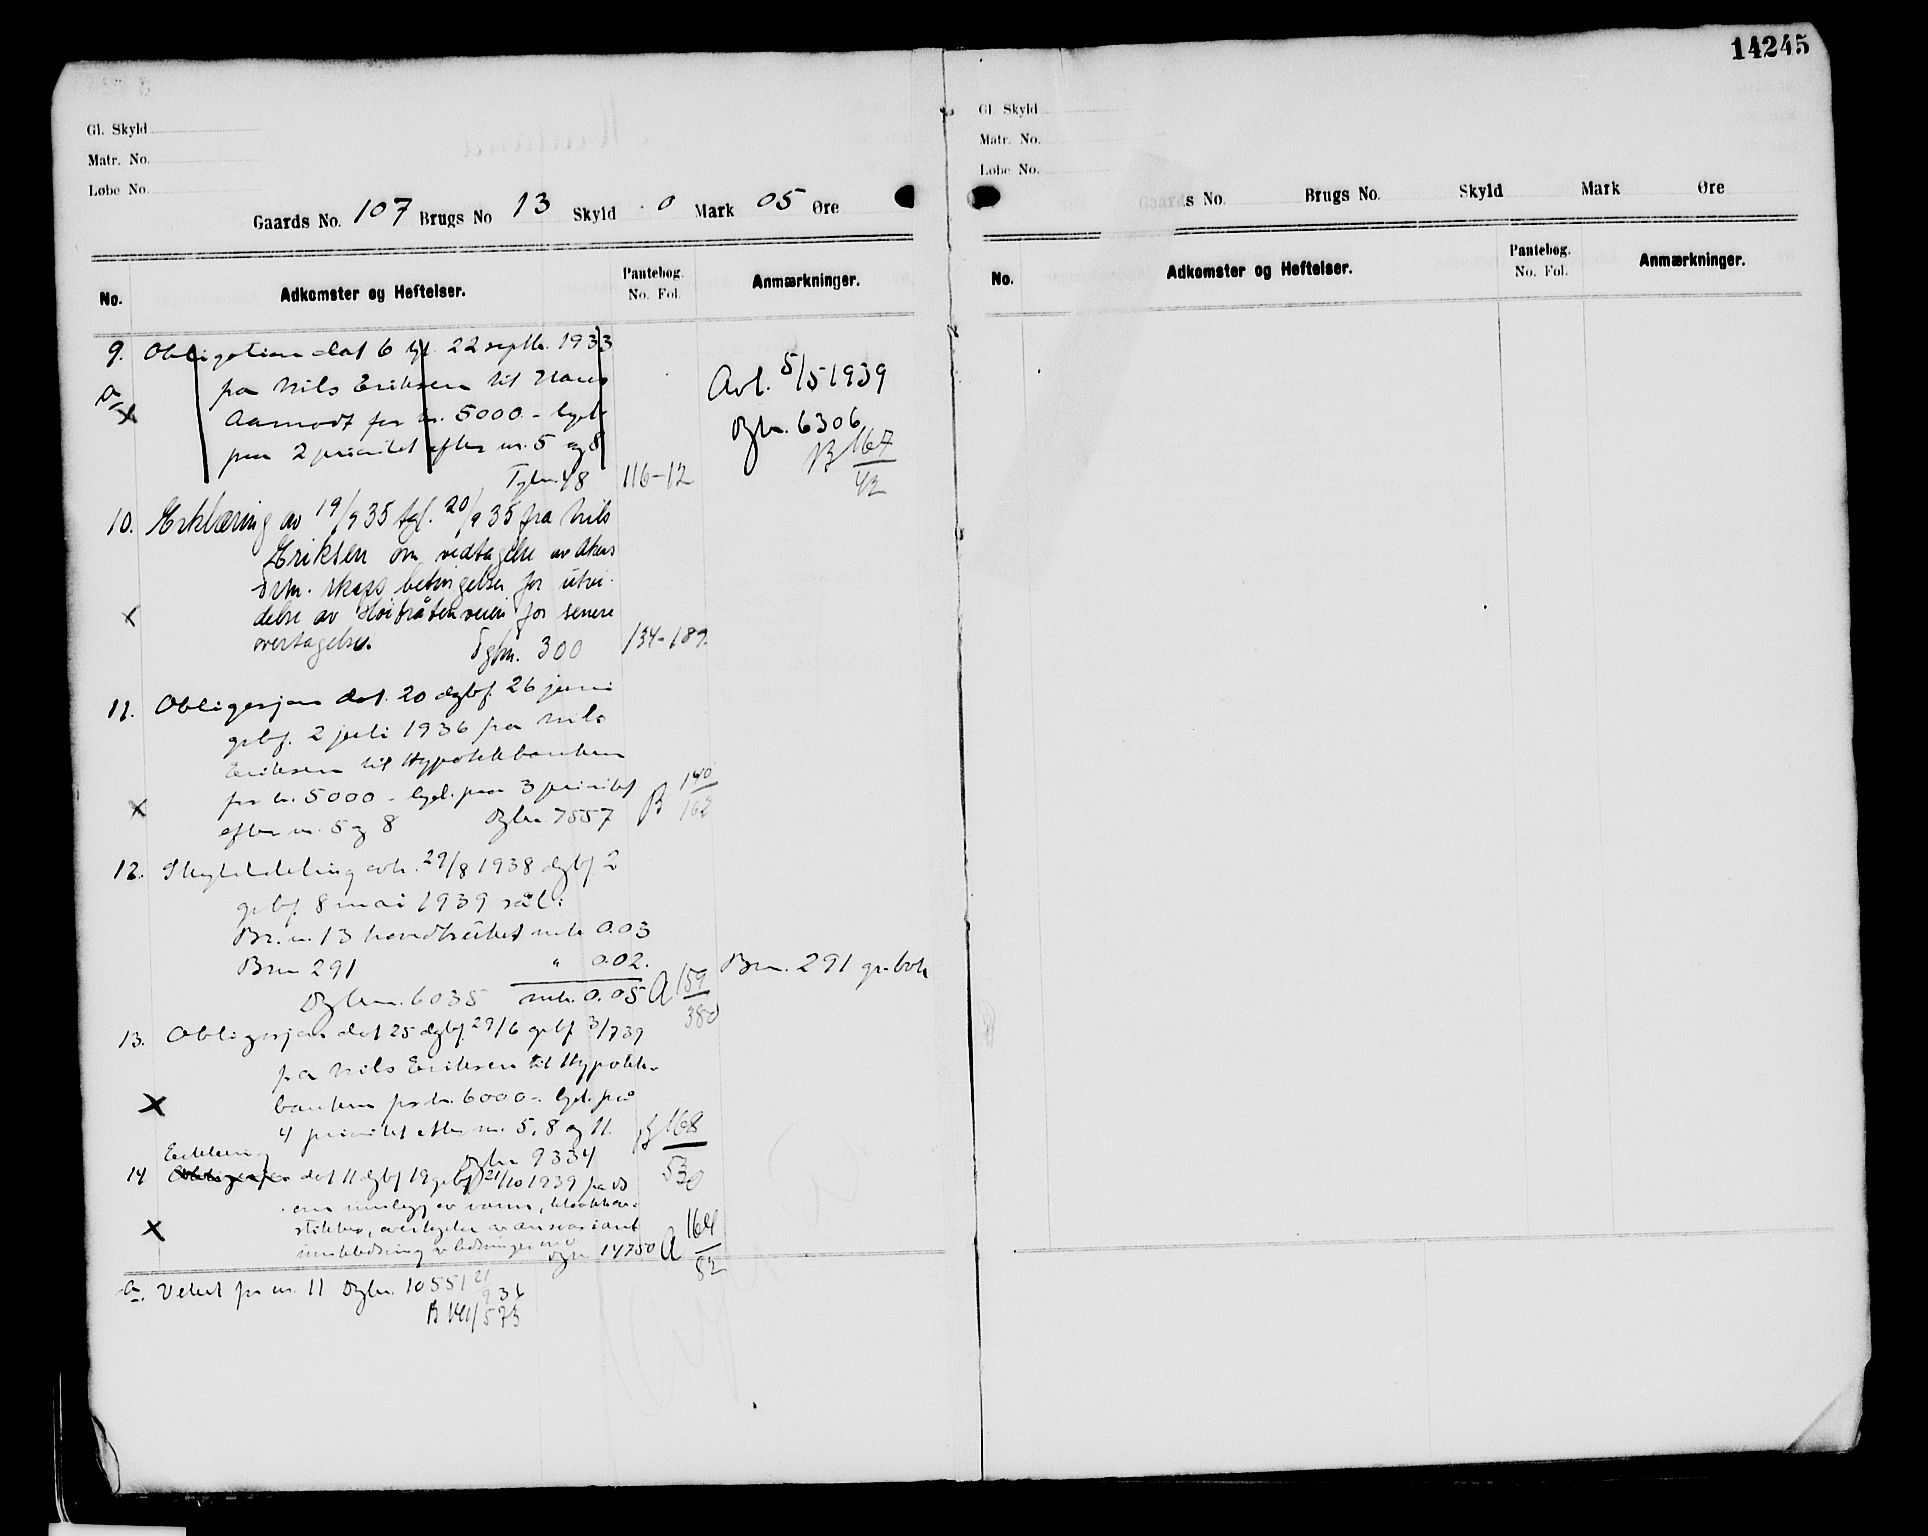 14245
Gl. Skyld
Matr. No.
Løbe No.
Gaards No. 107 Brugs No 13 Skyld 0 Mark 05 Øre
No. Adkomster og Heftelser. Pantebog. No. Fol. Anmærkninger.
9. Obligation dat 6 tgl. 22 septb. 1933
fra Nils Eriksen til Hans
Aamodt for kr. 5000.- lyd.
paa 2 prioritet efter nr. 5 og 8
Tgbnr. 48 116-12
Avl. 5/5 1939
Dgbnr. 6306
B 167/42
10. Erklæring av 19/9 35 tgl. 20/9 35 fra Nils
Eriksen om vedtagelse av Akers
betingelser for utvi-
delse av Hvitråtenveien for senere
overtagelse.
Dgbnr. 300 134-189.
11. Obligasjon dat. 20 dgbf. 26 juni
grbf. 2 juli 1936 fra Nils
Eriksen til Hypotekbanken
for kr. 5000 - lyd. paa 3 prioritet
efter nr. 5 og 8 Dgbnr. 7557 B 140/162
12. Skylddeling avh. 29/8 1938 dgbf 2
grbf. 8 mai 1939 sål:
Br. nr. 13 hovedbruket mrk 0.03
Brnr 291 " 0.02.
Dgbnr. 6035 mrk. 0.05 A 159/380
Brnr. 291 gr.bok
13. Obligasjon dat 25 dgbf. 29/6 grbf 3/7 39
fra Nils Eriksen til Hypotek-
banken for kr. 6000.- lyd. på
4 prioritet efter nr. 5, 8 og 11. B 168/530
Dgbnr 9334
Erklæring
14 Obligasjon dat 11 dgbf 19 grbf 21/10 1939 fra
om innlegg av vann, kloakk
stikker, overtagelse av ansvar
Dgbnr 14750 A 164/52
a. Veket for nr. 11 Dgbnr. 10551 21/9 36
B 141/573
Gl. Skyld
Matr. No.
Løbe No.
Gaards No. Brugs No. Skyld Mark Øre
No. Adkomster og Heftelser. Pantebog. No. Fol. Anmærkninger.